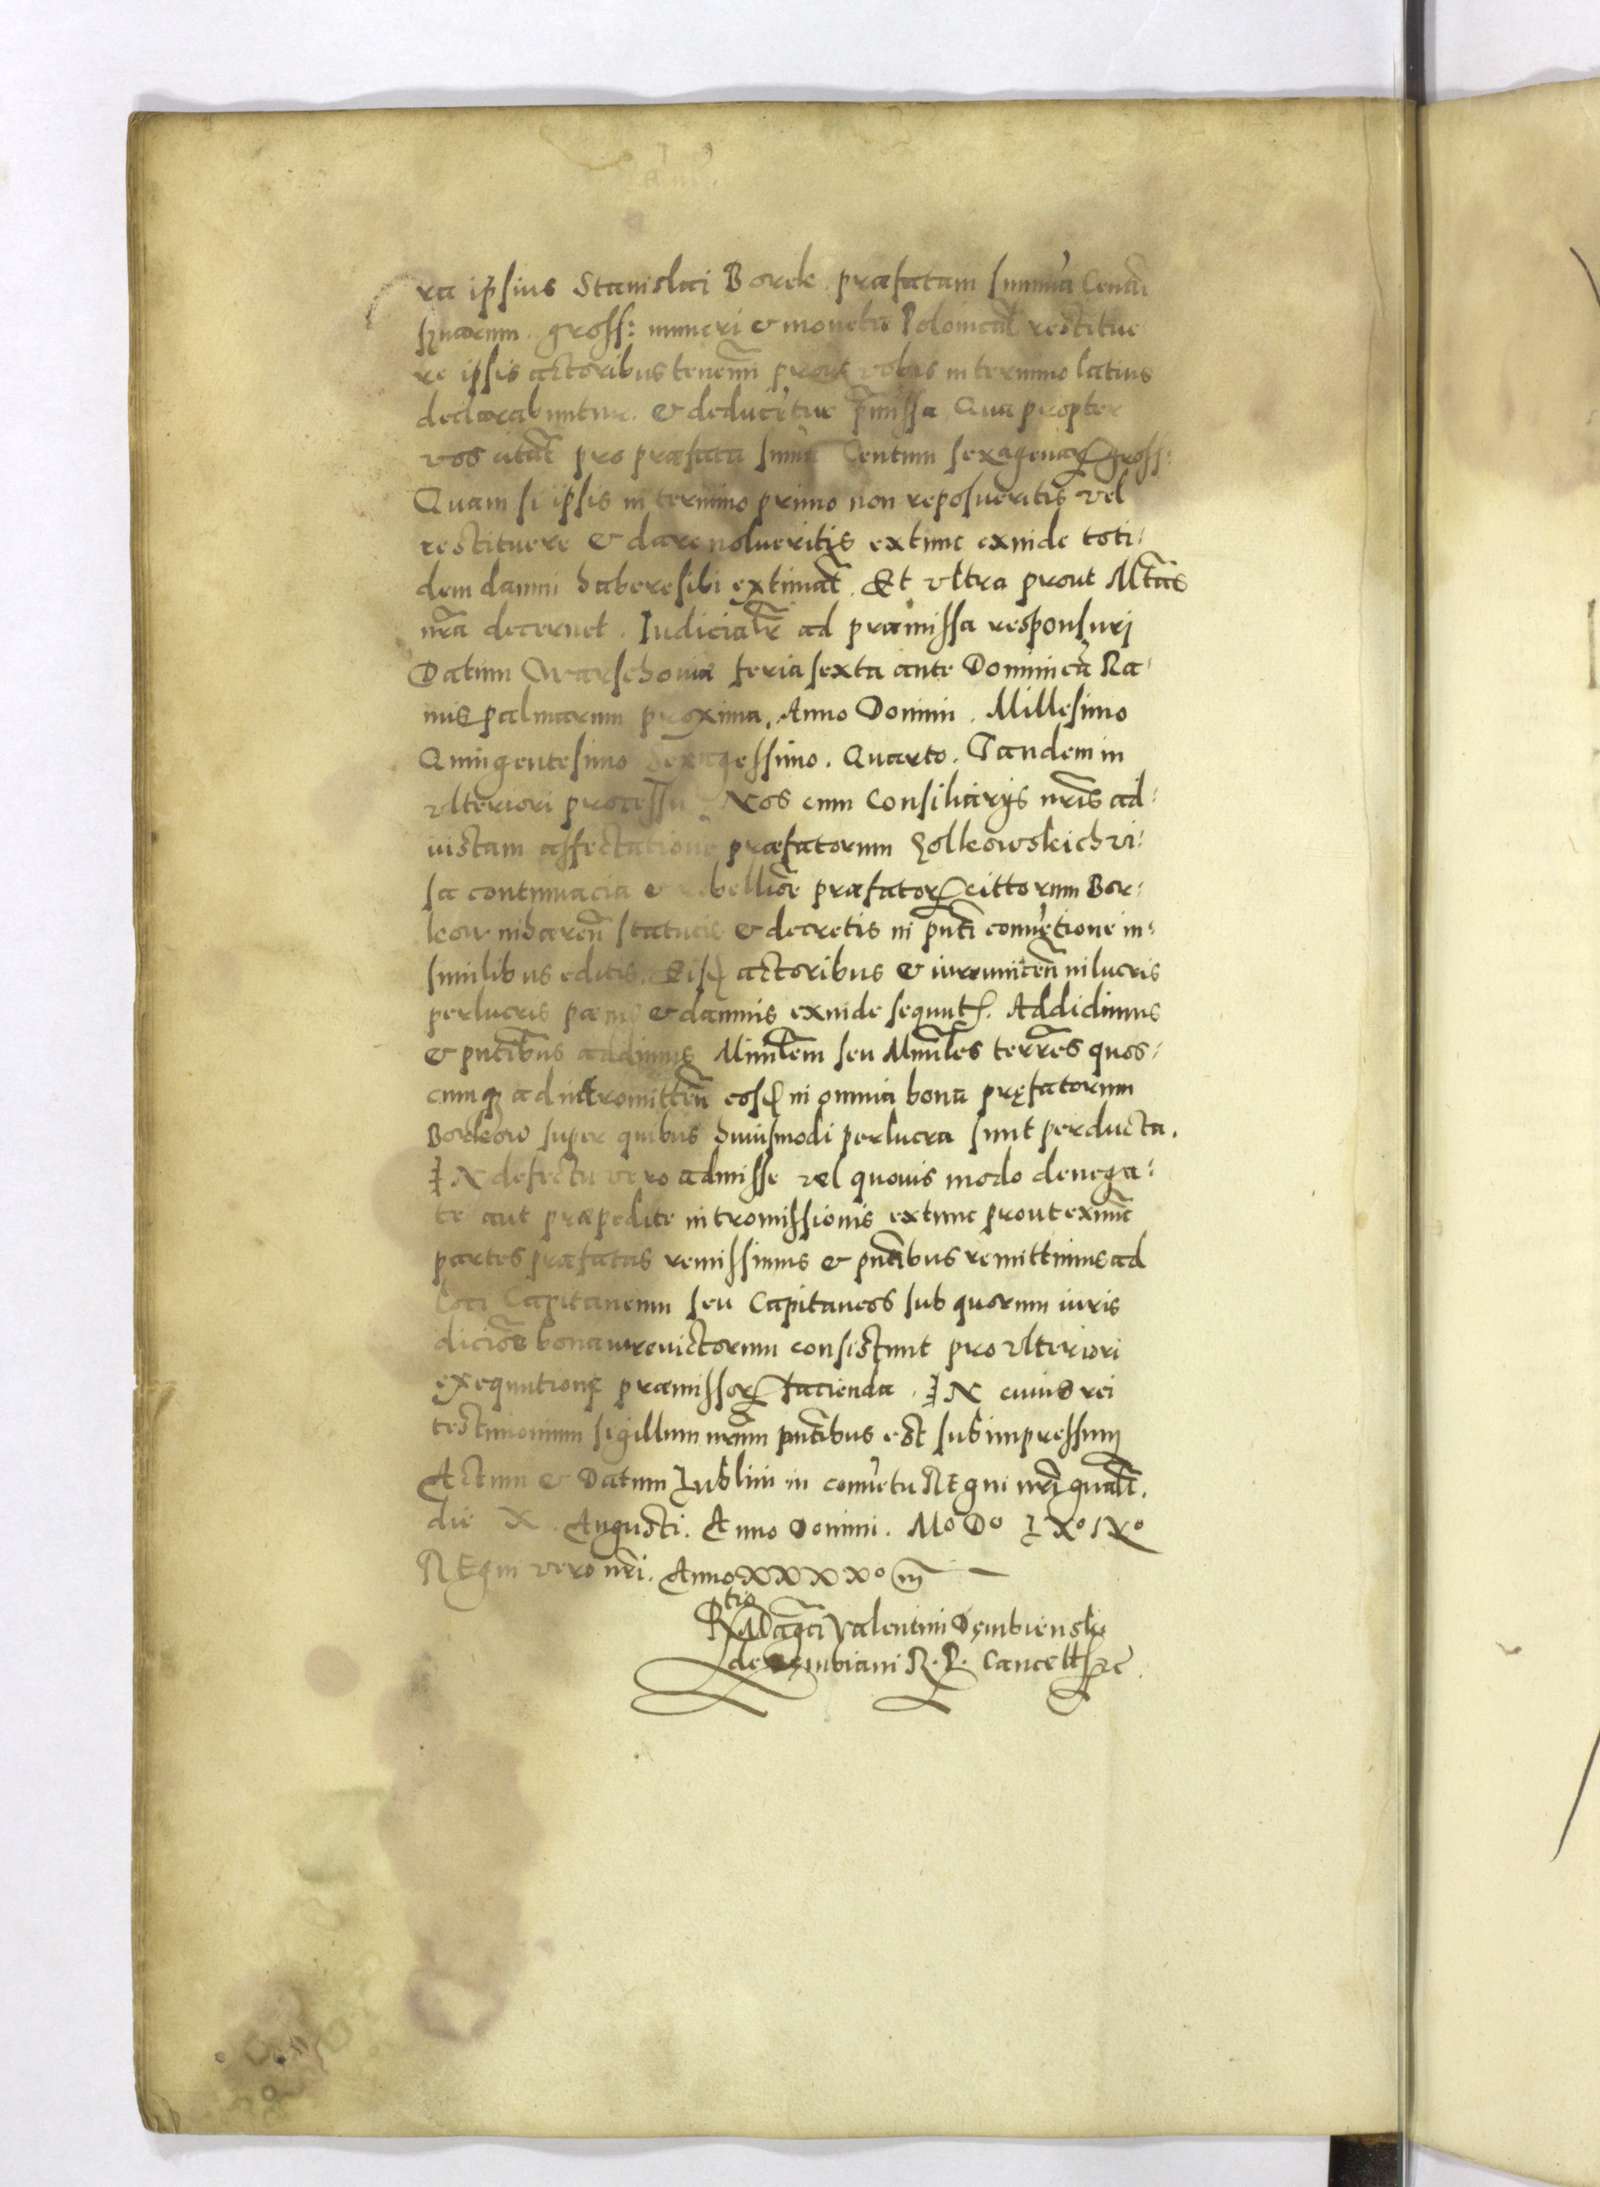 ra ipsius Stanislai Borek præfatam summã Centũ
sexagenarum gross: numeri & monetæ Polonical̃ restitue
re ipsis actoribus tenemi prout vobis in termino latius
declarabuntur & deducẽtur p̃missa Qua propter
vos citat̃ pro præfata sum̃a Centum sexagenarꝝ gross:
Quam si ipsis in termino primo non reposueritis vel
restituere & dare nolueritis extunc exinde toti-
dem damni habere sibi extimat̃. Et vltra prout Mtãs
nr̃a decernet. Iudicialr̃ ad præmissa responsurj
Datum Warschouiæ feria sexta ante Dominicã Ra-
mis palmarum proxima, Anno Domini. Millesimo
Quingentesimo Sexagessimo. Quarto. Tandem in
vlteriori processu Nos cum Consiliarijs nr̃is ad-
iustam affectatione præfatorum Zolkowskich vi-
sa contumacia & rebellioẽ præfatorꝝ cittorum Bor-
kow inhæreñ statutis & decretis in pñti conuẽtione in-
similibus editis. Eisdẽ actoribus & iuremitteñ in lucris
perlucris pænis & damnis exinde sequntꝝ. Addidimus
& pñtibus addimus Minrl̃em seu Minrl̃es terrr̃es quos-
cumqꝫ ad intromitteñ eosdẽ in omnia bona pręfatorum
Borkow super quibus huiusmodi perlucra sunt perducta.
IN defectu vero admisse vel quouis modo denega-
te aut præpedite intromissionis extunc prout exnunc
partes præfatas remissimus & pñtibus remittimus ad
Loci Capitaneum seu Capitaneos sub quorum iuris
dicioẽ bona iureuictorum consistunt pro vlteriori
exequutione præmissorꝝ facienda. IN cuius rei
testimonium sigillum nr̃um pñtibus est subimpressum
Actum & Datum Lublini in conuẽtu REgni nr̃i gñal̃i.
die X. Augusti. Anno Domini. Mo Do LXo IXo
REgni vero nr̃i. Anno XXXXo
Rtio Magcĩ Valentini Dęmbienski
de Dęmbiani R. P. Cancell̃ &c̃